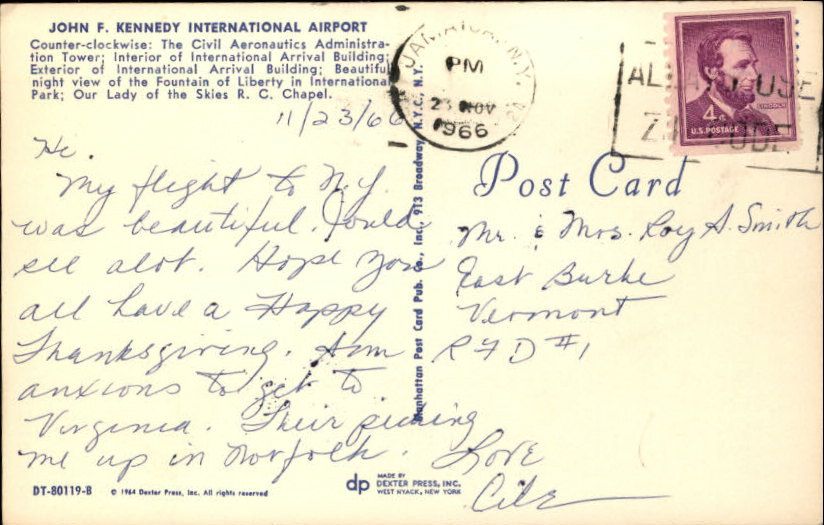 JOHN F. KENNEDY INTERNATIONAL AIRPORT
Counter-clockwise: The Civil Aeronautics Administra-
tion Tower; Interior of International Arrival Building;
Exterior of International Arrival Building; Beautiful
night view of the Fountain of Liberty in International
Park; Our Lady of the Skies R. C. Chapel.
11/23/66
Hi.
My flight to N.Y.
was beautiful. Could
see alot. Hope you
all have a Happy
Thanksgiving. Am
anxious to get to
Virginia. Their picking
me up in Norfolk.
Love
JAMAICA, N.Y.
PM
23 NOV
1966
ALWAYS USE
ZIP CODE
4¢
LINCOLN
U.S. POSTAGE
Post Card
Mr. & Mrs. Roy A. Smith
East Burke
Vermont
RFD #1
Manhattan Post Card Pub. Co., Inc., 913 Broadway, N.Y.C., N.Y.
DT-80119-B
© 1964 Dexter Press, Inc. All rights reserved
dp
MADE BY
DEXTER PRESS, INC.
WEST NYACK, NEW YORK